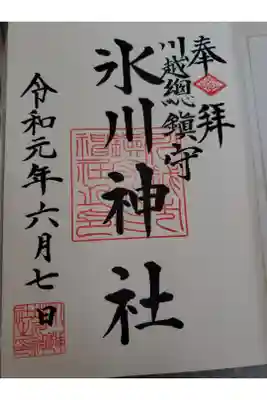 奉拝
川越總鎮守
氷川神社
令和元年六月七日